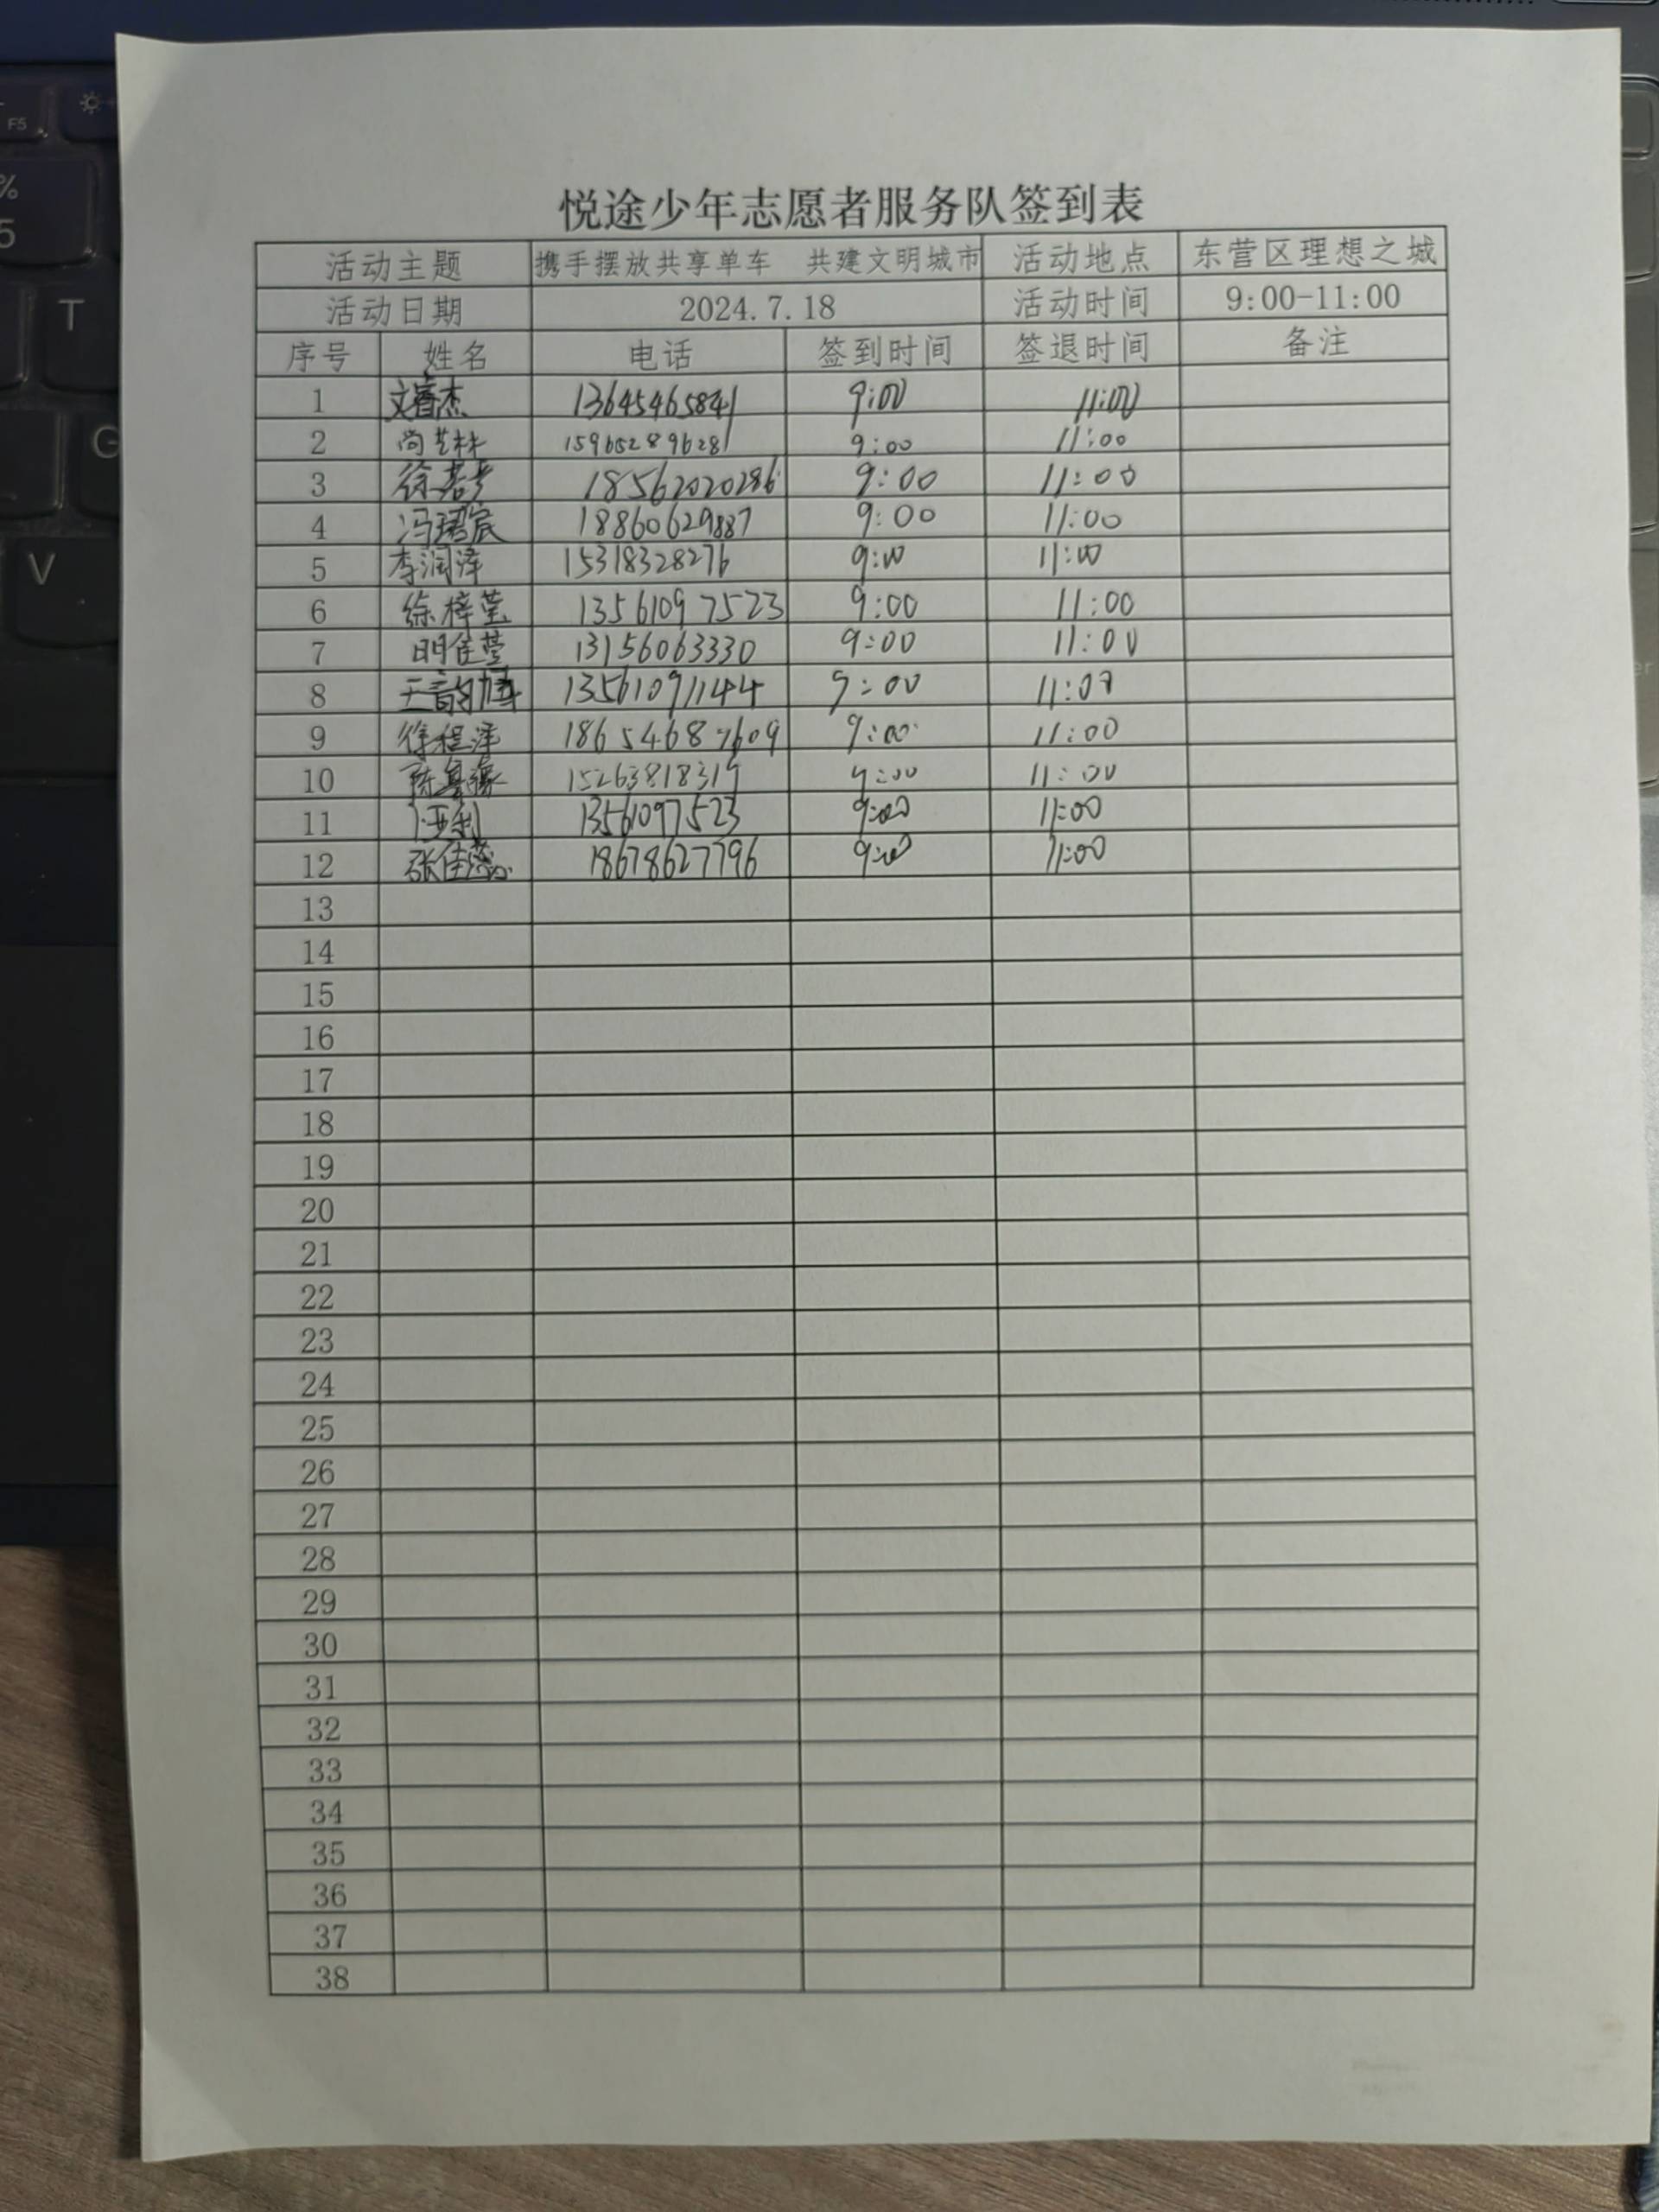 悦途少年志愿者服务队签到表
活动主题 携手摆放共享单车 共建文明城市 活动地点 东营区理想之城
活动日期 2024.7.18 活动时间 9:00-11:00
序号 姓名 电话 签到时间 签退时间 备注
1 文睿杰 13645465841 9:00 11:00
2 尚艺林 15965289628 9:00 11:00
3 18562020286 9:00 11:00
4 冯珺宸 18860629887 9:00 11:00
5 李润泽 15318328276 9:00 11:00
6 徐梓莹 13561097523 9:00 11:00
7 明佳莹 13156063330 9:00 11:00
8 13561091144 9:00 11:00
9 徐程泽 18654687609 9:00 11:00
10 15263818319 9:00 11:00
11 13561097523 9:00 11:00
12 18678627796 9:00 11:00
13
14
15
16
17
18
19
20
21
22
23
24
25
26
27
28
29
30
31
32
33
34
35
36
37
38
F5
%
5
T
G
V